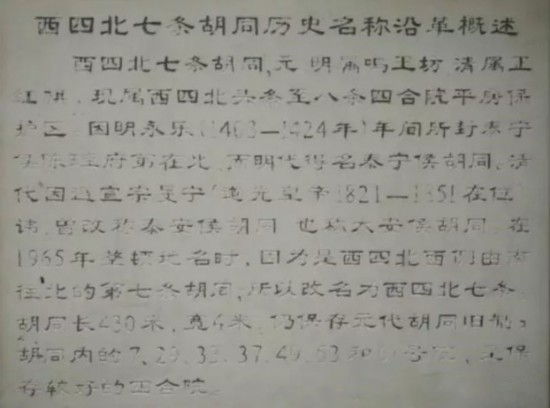 西四北七条胡同历史名称沿革概述
西四北七条胡同,元 明属鸣玉坊 清属正
红旗 现属西四北头条至八条四合院平房保
护区 因明永乐(1403—1424年)年间所封泰宁
侯陈珪府第在此 而明代得名泰宁侯胡同。清
代因避宣宗旻宁 道光皇帝1821—1851在位
讳,曾改称泰安侯胡同 也称大安侯胡同 在
1965年整顿地名时,因为是西四北西侧由南
往北的第七条胡同,所以改名为西四北七条
胡同长430米,宽6米 仍保存元代胡同旧制。
胡同内的7、29、33、37、49、53和 号院
存较好的四合院